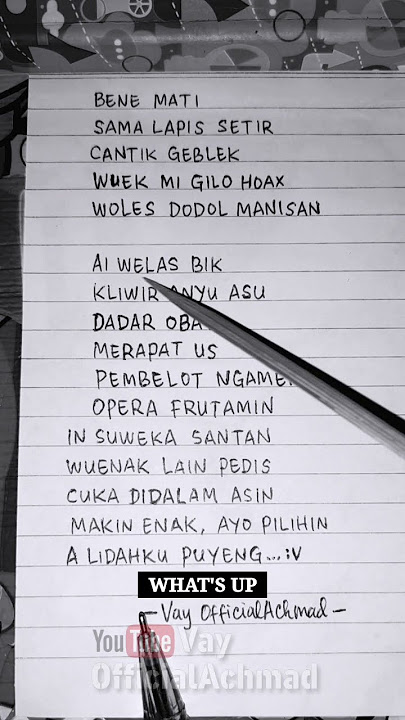 BENE MATI
SAMA LAPIS SETIR
CANTIK GEBLEK
WUEK MI GILO HOAX
WOLES DODOL MANISAN
AI WELAS BIK
KLIWIR ANYU ASU
DADAR
MERAPAT US
PEMBELOT
OPERA FRUTAMIN
IN SUWEKA SANTAN
WUENAK LAIN PEDIS
CUKA DIDALAM ASIN
MAKIN ENAK, AYO PILIHIN
A LIDAHKU PUYENG...:V
WHAT'S UP
- Vay OfficialAchmad -
YouTube Vay
OfficialAchmad